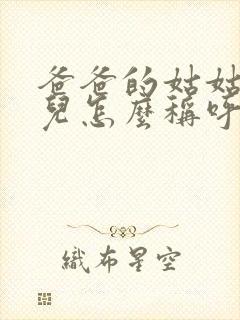 爸爸的姑姑
兒怎麼稱呼
織布星空